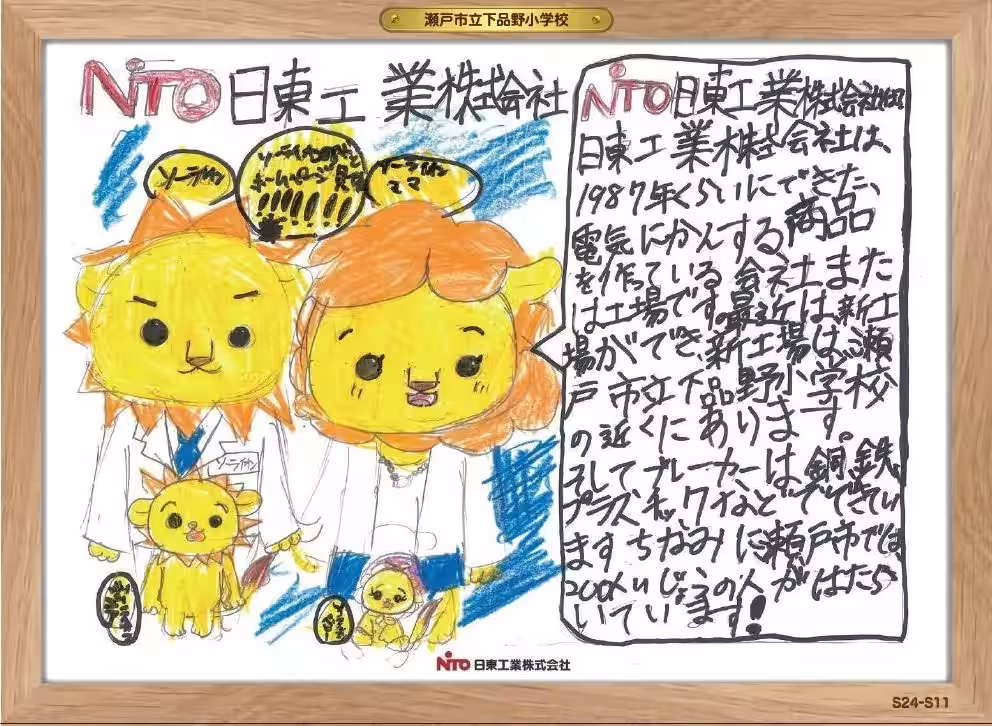 瀬戸市立下品野小学校
NITO 日東工業株式会社
ソーライオン
ホームページ見てね
!!!!!!!
ソーライオン
ママ
ソーライオン
NITO 日東工業株式会社
日東工業株式会社は、
1987年くらいにできた、
電気にかんする商品
を作っている会社また
は工場です。最近は、新工
場ができ、新工場は、瀬
戸市立下品野小学校
の近くにあります。
そしてブレーカーは、銅、鉄、
プラスチックなどでできてい
ますちなみに瀬戸市では、
200人いじょうの人がはたら
いています!
NITO 日東工業株式会社
S24-S11